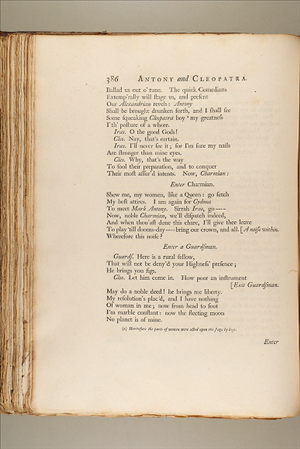 386 ANTONY and CLEOPATRA.
Ballad us out o' tune. The quick Comedians
Extemp'rally will stage us, and present
Our Alexandrian revels: Antony
Shall be brought drunken forth, and I shall see
Some squeaking Cleopatra boy * my greatness
I' th' posture of a whore.
Iras. O the good Gods!
Cleo. Nay, that's certain.
Iras. I'll never see it; for I'm sure my nails
Are stronger than mine eyes.
Cleo. Why, that's the way
To fool their preparation, and to conquer
Their most assur'd intents. Now, Charmian:
Enter Charmian.
Shew me, my women, like a Queen: go fetch
My best attires. I am again for Cydnus
To meet Mark Antony. Sirrah Iras, go —
Now, noble Charmian, we'll dispatch indeed,
And when thou'ast done this chare, I'll give thee leave
To play 'till dooms-day — bring our crown, and all. [A noise within.
Wherefore this noise?
Enter a Guardsman.
Guards. Here is a rural fellow,
That will not be deny'd your Highness' presence;
He brings you figs.
Cleo. Let him come in. How poor an instrument
[Exit Guardsman.
May do a noble deed! he brings me liberty.
My resolution's plac'd, and I have nothing
Of woman in me; now from head to foot
I'm marble constant: now the fleeting moon
No planet is of mine.
the parts of women were acted upon the stage by boys.
Enter